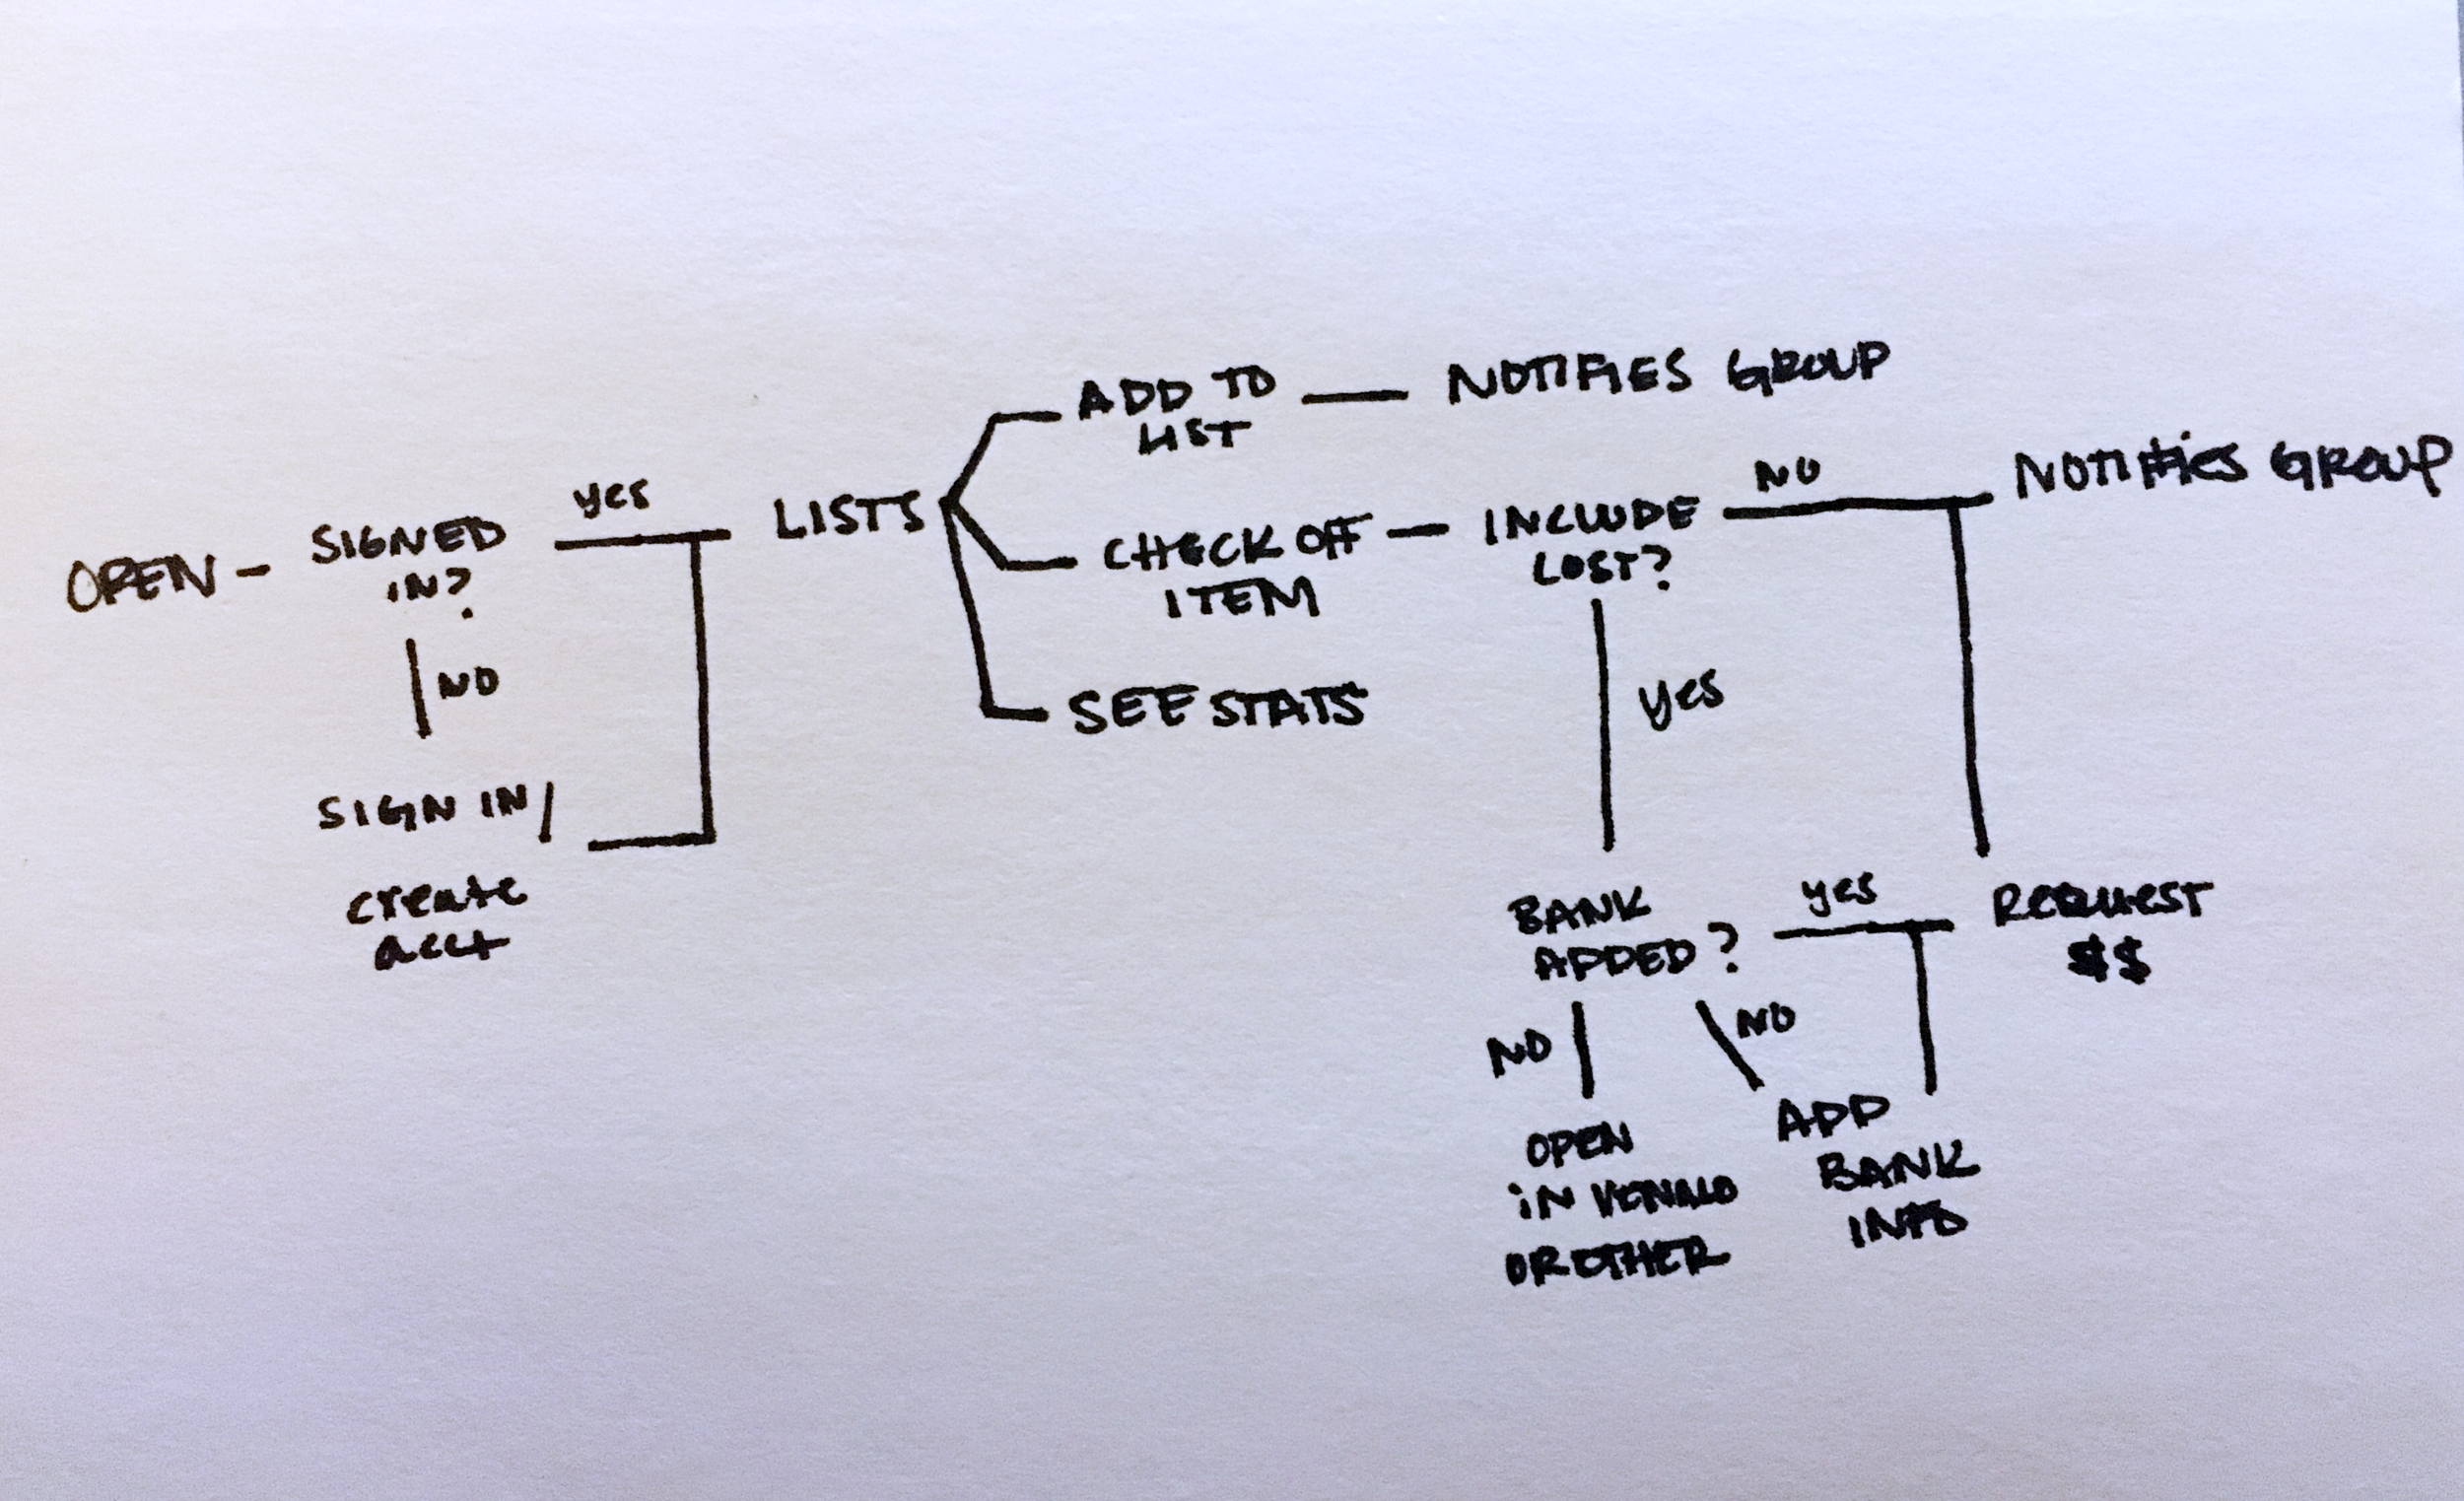 OPEN
SIGNED
IN?
yes
NO
SIGN IN/
create
acct
LISTS
ADD TO
LIST
NOTIFIES GROUP
CHECK OFF
ITEM
SEE STATS
INCLUDE
COST?
NO
NOTIFIES GROUP
yes
BANK
ADDED?
yes
REQUEST
$$
NO
NO
OPEN
IN VENMO
OR OTHER
ADD
BANK
INFO